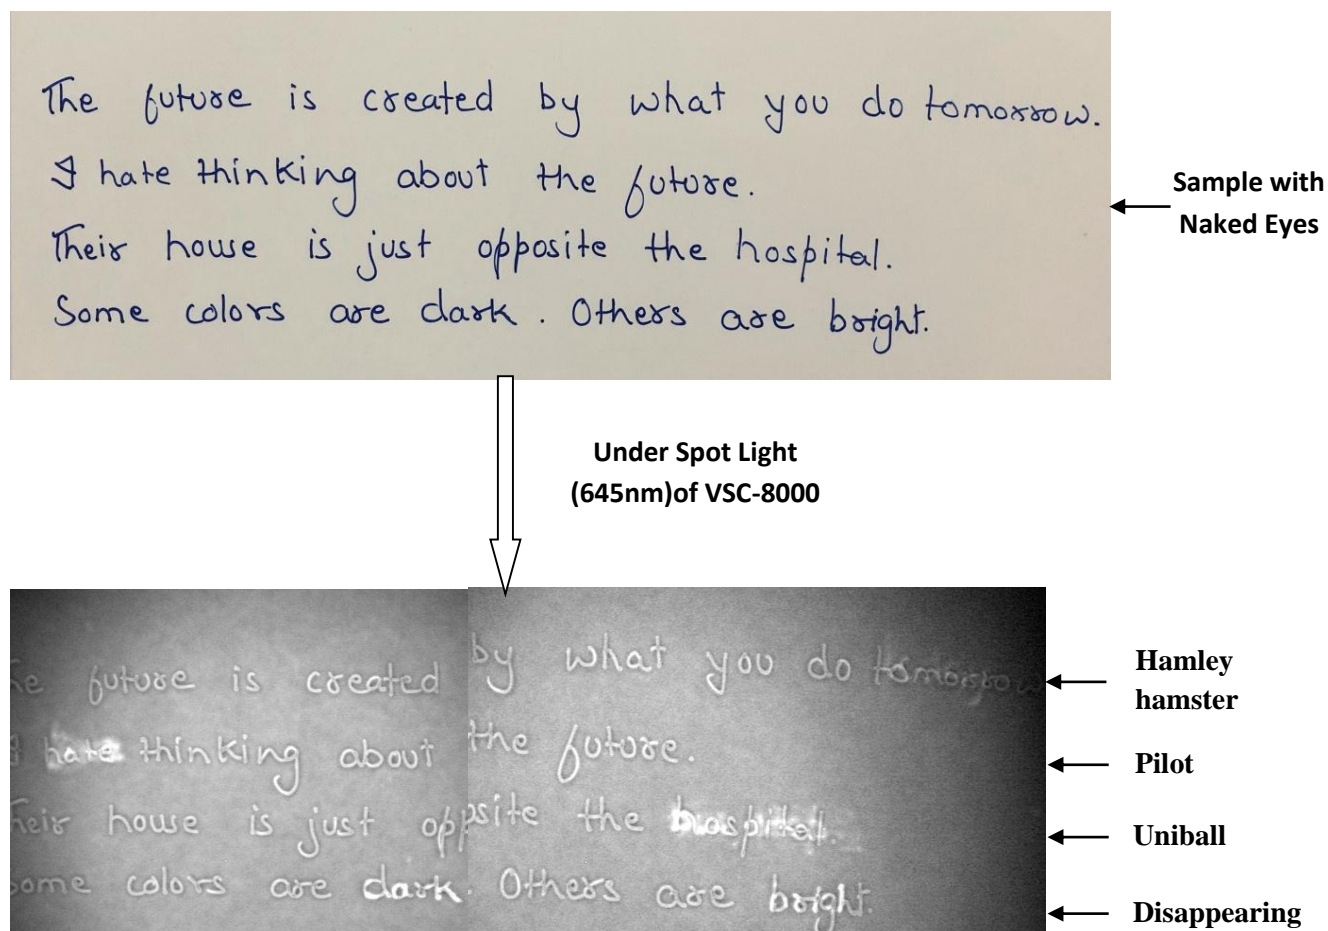 The future is created by what you do tomorrow.
I hate thinking about the future.
Their house is just opposite the hospital.
Some colors are dark. Others are bright.
Sample with
Naked Eyes
Under Spot Light
(645nm)of VSC-8000
he future is created by what you do tomorrow
I hate thinking about the future.
heir house is just opposite the hospital.
ome colors are dark. Others are bright.
Hamley
hamster
Pilot
Uniball
Disappearing